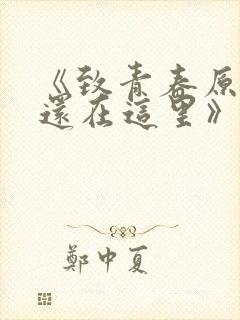 《致青春原
還在這里》
鄭中夏